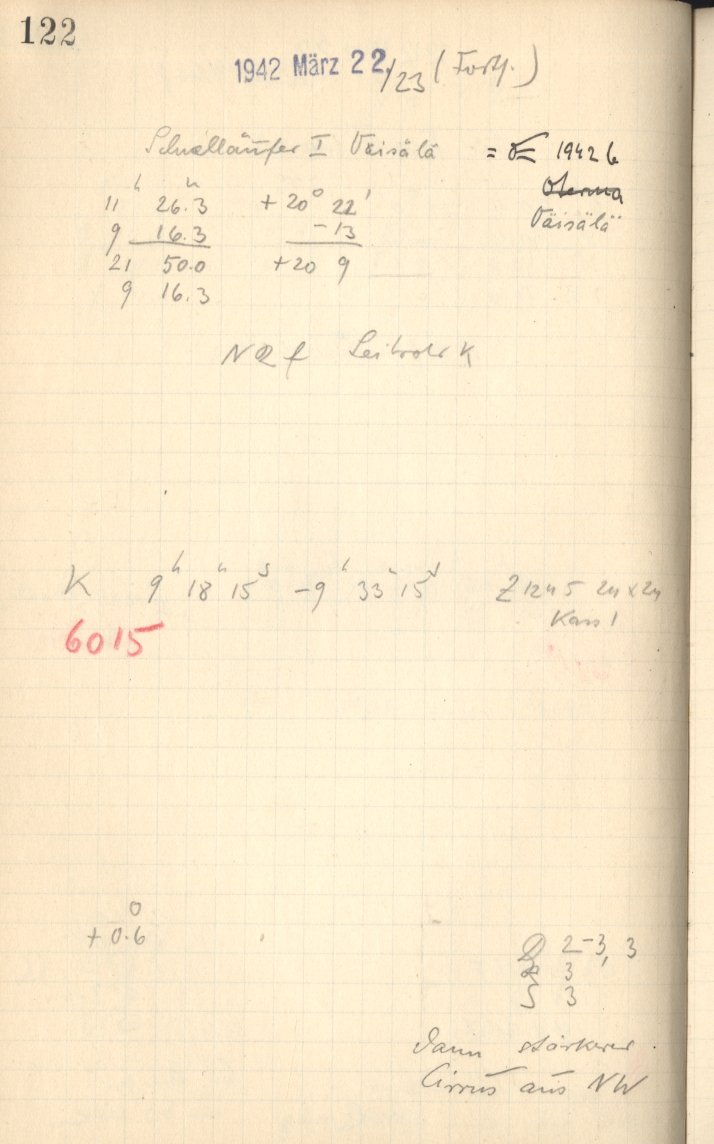 122
1942 März 22./23 (Forts.)
Schnelläufer I Väisälä = ☄ 1942 b
Oterma
Väisälä
11h 26.3m +20° 22'
9 16.3 -13
21 50.0 +20 9
9 16.3
Leitrohr K
K 9h 18m 15s -9h 33m 15s Z 12u5 24x24
Kass 1
6015
0
+0.6
2-3, 3
3
S 3
Dann stärkerer
Cirrus aus NW